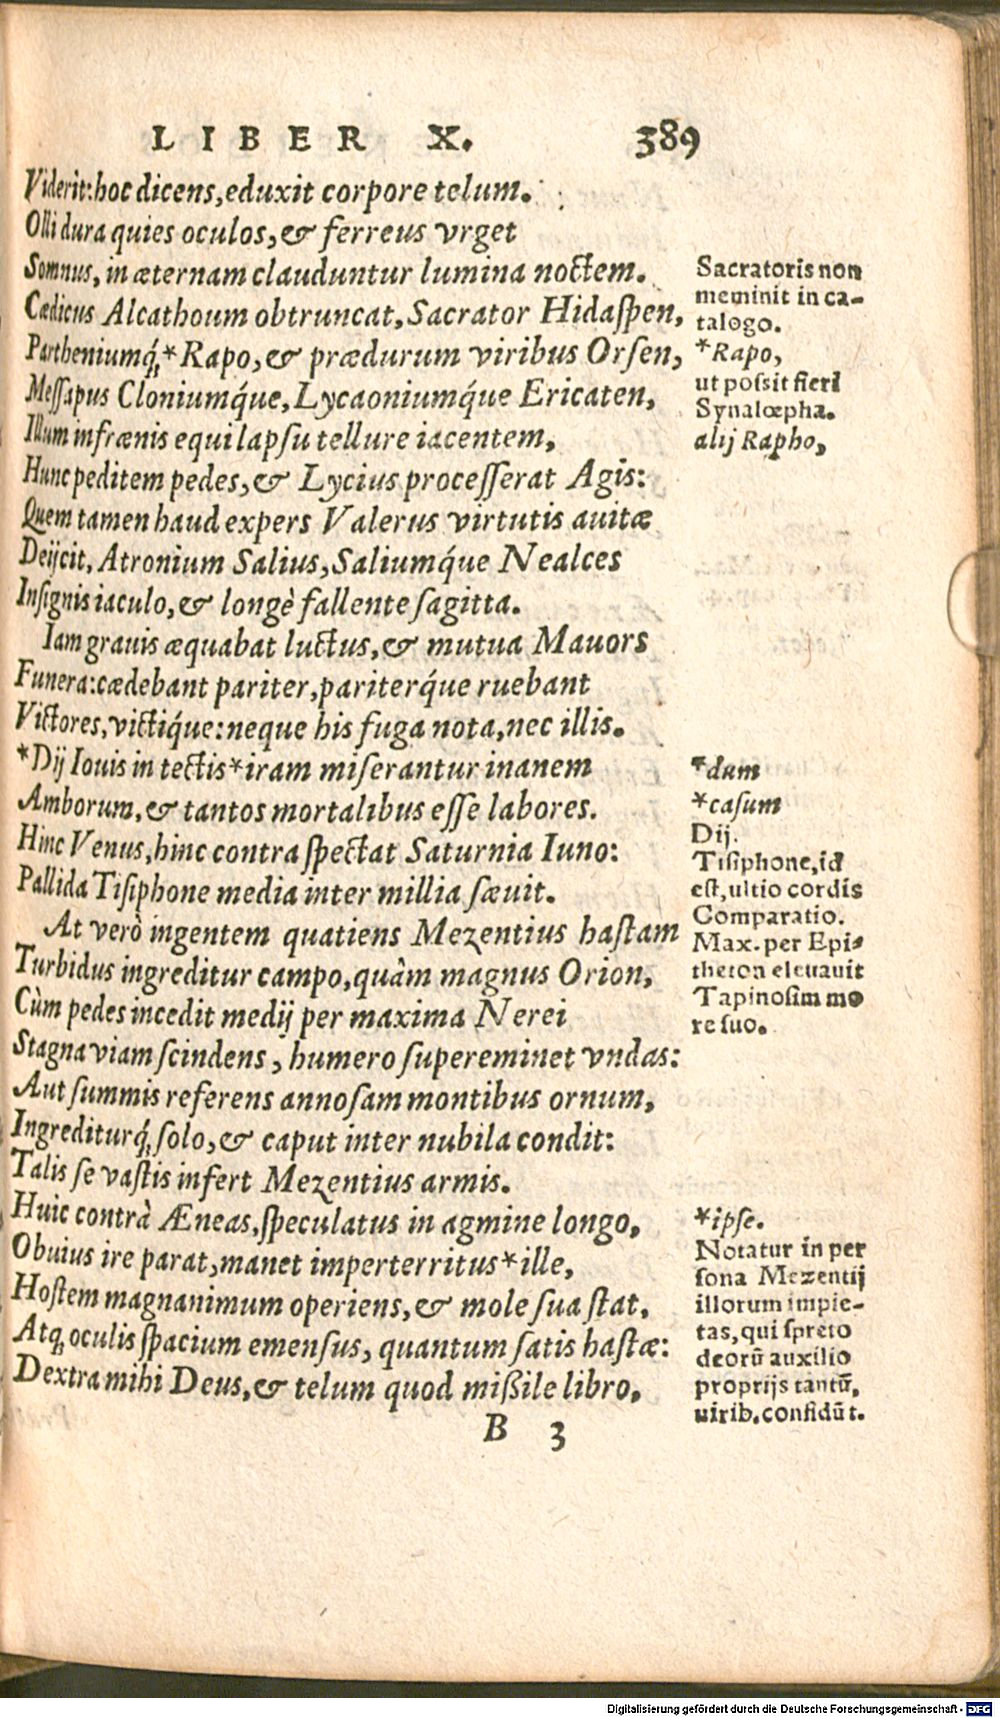 LIBER X. 389
Viderit: hoc dicens, eduxit corpore telum.
Olli dura quies oculos, & ferreus vrget
Somnus, in æternam clauduntur lumina noctem.
Cædicus Alcathoum obtruncat, Sacrator Hidaspen,
Partheniumq́; *Rapo, & prædurum viribus Orsen,
Messapus Cloniumq́ue, Lycaoniumq́ue Ericaten,
Illum infrænis equi lapsu tellure iacentem,
Hunc peditem pedes, & Lycius processerat Agis:
Quem tamen haud expers Valerus virtutis auitæ
Deijcit, Atronium Salius, Saliumq́ue Nealces
Insignis iaculo, & longè fallente sagitta.
Iam grauis æquabat luctus, & mutua Mauors
Funera: cædebant pariter, pariterq́ue ruebant
Victores, victiq́ue: neque his fuga nota, nec illis.
*Dij Iouis in tectis *iram miserantur inanem
Amborum, & tantos mortalibus esse labores.
Hinc Venus, hinc contra spectat Saturnia Iuno:
Pallida Tisiphone media inter millia sæuit.
At verò ingentem quatiens Mezentius hastam
Turbidus ingreditur campo, quàm magnus Orion,
Cùm pedes incedit medij per maxima Nerei
Stagna viam scindens, humero supereminet vndas:
Aut summis referens annosam montibus ornum,
Ingrediturq́; solo, & caput inter nubila condit:
Talis se vastis infert Mezentius armis.
Huic contrà Æneas, speculatus in agmine longo,
Obuius ire parat, manet imperterritus *ille,
Hostem magnanimum operiens, & mole sua stat,
Atq; oculis spacium emensus, quantum satis hastæ:
Dextra mihi Deus, & telum quod mißile libro,
B 3
Sacratoris non
meminit in ca-
talogo.
*Rapo,
ut possit fieri
Synalœpha.
alij Rapho,
*dum
*casum
Dij.
Tisiphone, id
est, ultio cordis
Comparatio.
Max. per Epi-
theton eleuauit
Tapinosim mo
re suo.
*ipse.
Notatur in per
sona Mezentij
illorum impie-
tas, qui spreto
deorũ auxilio
proprijs tantũ,
uirib. confidũt.
Digitalisierung gefördert durch die Deutsche Forschungsgemeinschaft - DFG